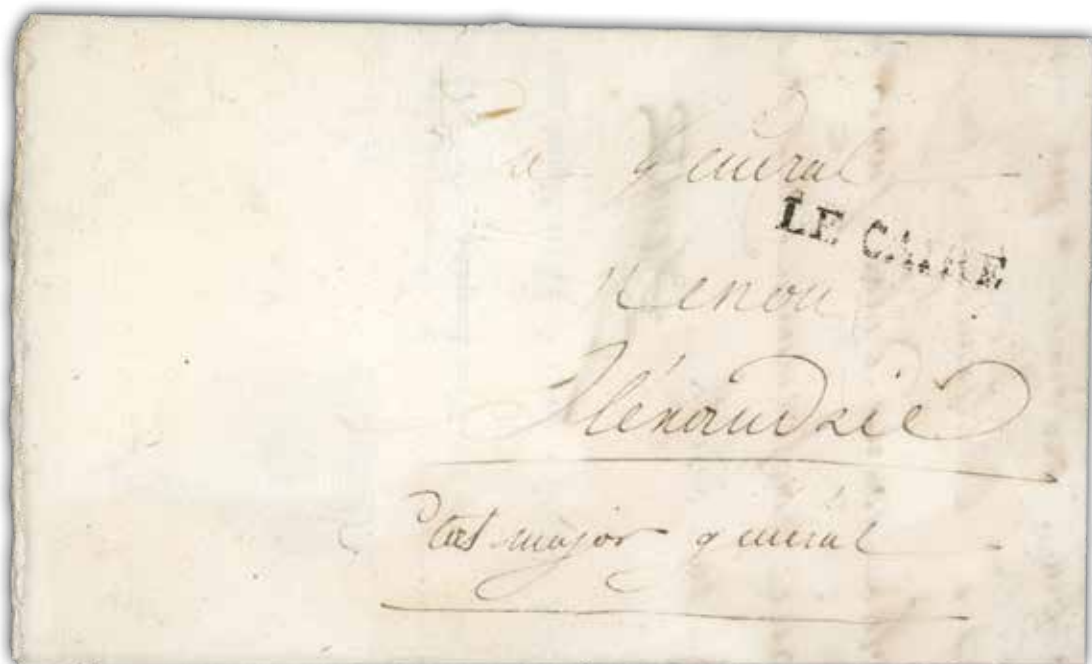 au général
LE CAIRE
Menou
Aléxandrie
Etat major général